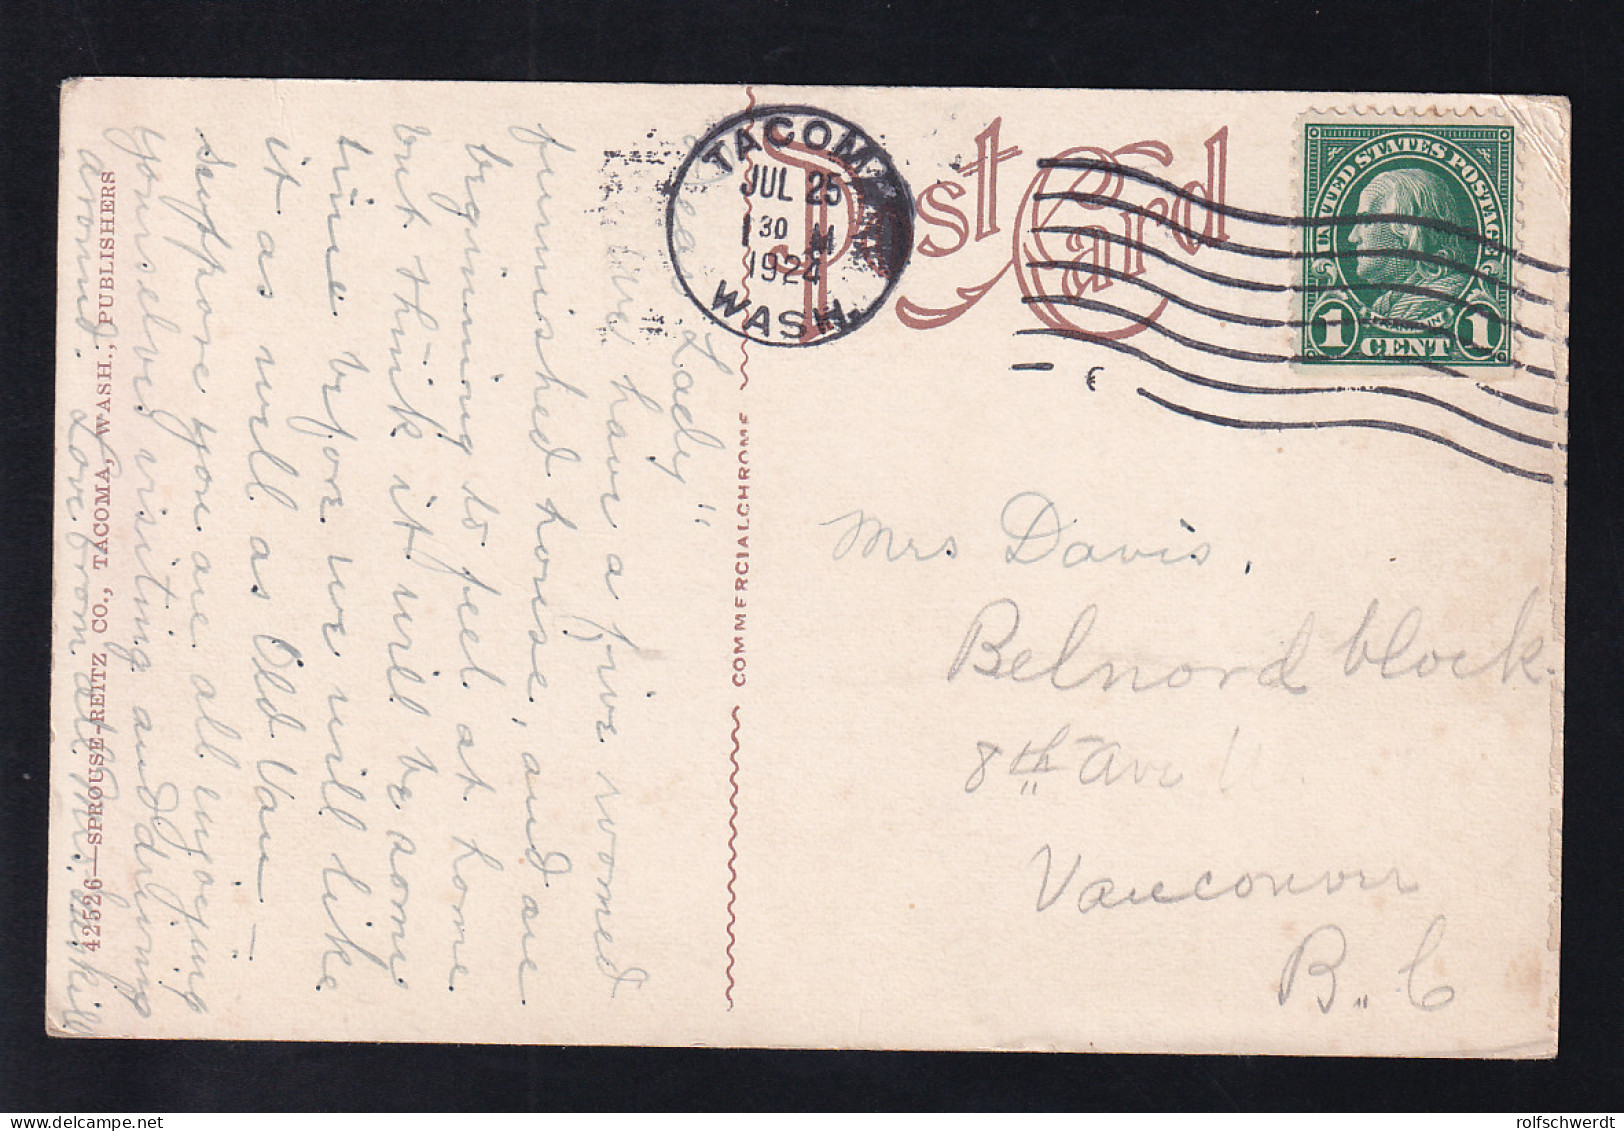 Post Card
TACOMA
JUL 25
1 30 M
1924
WASH.
UNITED STATES POSTAGE
FRANKLIN
1 CENT 1
COMMERCIALCHROME
42526—SPROUSE-REITZ CO., TACOMA, WASH., PUBLISHERS
"Dear Lady"
have a five roomed
furnished house, and are
begining to feel at home
but think it will be some
time before we will like
it as well as Old Van —
suppose you are all enjoying
yourselves visiting and driving
around. Love from all Mrs. Gaskill
Mrs Davis.
Belnord block.
8th Ave W.
Vancouver
B.. C
rolfschwerdt